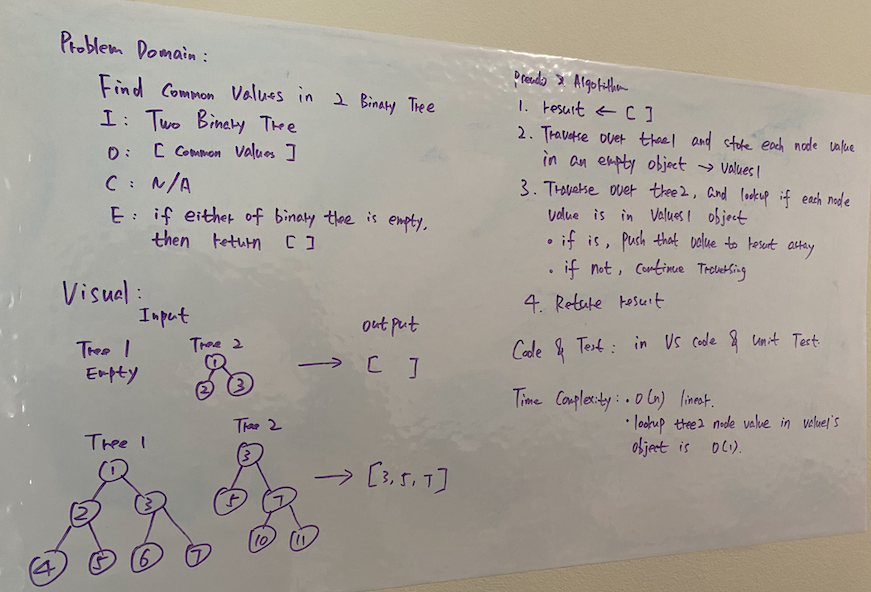 Problem Domain:
Find Common Values in 2 Binary Tree
I: Two Binary Tree
O: [ Common Values ]
C: N/A
E: if either of binary tree is empty,
then return [ ]
Visual:
Input
output
Tree 1
Empty
Tree 2
1
2 3
→ [ ]
Tree 1
1
2 3
4 5 6 7
Tree 2
3
5 7
10 11
→ [3, 5, 7]
Pseudo & Algorithm
1. result ← [ ]
2. Traverse over tree1 and store each node value
in an empty object → values1
3. Traverse over tree2, and lookup if each node
value is in values1 object
• if is, push that value to result array
• if not, continue Traversing
4. Return result
Code & Test: in VS code & unit Test.
Time Complexity: • O(n) linear.
• lookup tree2 node value in value1's
object is O(1).